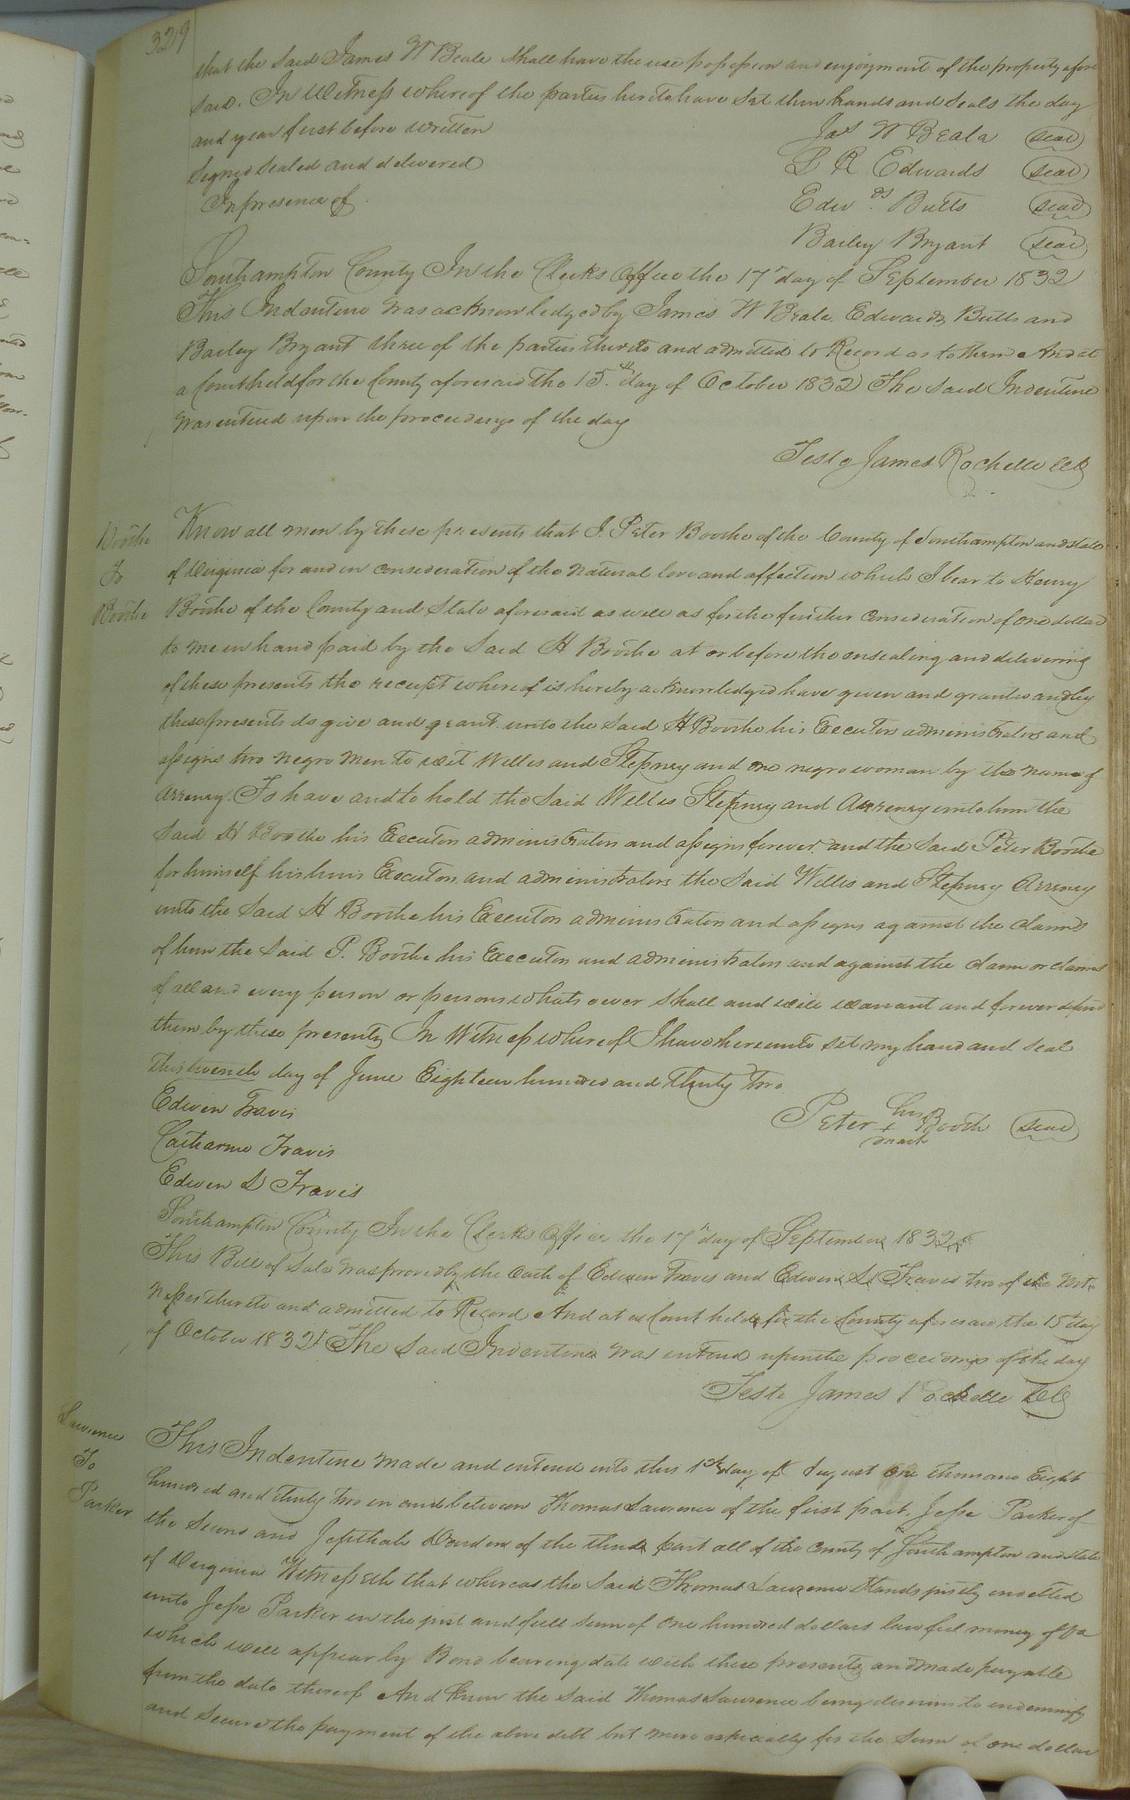 329
that the said James W Beale shall have the use possession and enjoyment of the property afore
said. In Witness whereof the parties hereto have set their hands and seals the day
and year first before written
Jas W Beala seal
Signed sealed and delivered
S R Edwards seal
In presence of
Edwds Butts seal
Bailey Bryant seal
Southampton County In the Clerks Office the 17th day of September 1832
This Indenture was acknowledged by James W Beale Edwards Butts and
Bailey Bryant three of the parties thereto and admitted to Record as to them And at
a Court held for the County aforesaid the 15th day of October 1832 The said Indenture
was entered upon the proceedings of the day
Teste James Rochelle Clk
Boothe
To
Boothe
Know all men by these presents that I Peter Boothe of the County of Southampton and State
of Virginia for and in consideration of the natural love and affection which I bear to Henry
Boothe of the County and State aforesaid as well as for the further consideration of one dollar
to me in hand paid by the said H Boothe at or before the ensealing and delivering
of these presents the receipt whereof is hereby acknowledged have given and granted and by
these presents do give and grant unto the said H Boothe his Executors administrators and
assigns two negro men to wit Willis and Stepney and one negro woman by the name of
Arreney. To have and to hold the said Willis Stepney and Arreney unto him the
said H Boothe his Executors administrators and assigns forever and the said Peter Boothe
for himself his heirs Executors and administrators the said Willis and Stepney Arreney
unto the said H Boothe his Executors administrators and assigns against the claims
of him the said P. Boothe his Executors and administrators and against the claim or claims
of all and every person or persons whatsoever shall and will warrant and forever defend
them by these presents In Witness whereof I have hereunto set my hand and seal
this day of June Eighteen hundred and thirty two
Edwin Travis
Peter his + mark Booth seal
Catharine Travis
Edwin D Travis
Southampton County In the Clerks Office the 17th day of September 1832
This Bill of Sale was proved by the oath of Edwin Travis and Edwin D. Travis two of the Wit-
nesses thereto and admitted to Record And at a Court held for the County aforesaid the 15 day
of October 1832 The said Indenture was entered upon the proceedings of the day
Teste James Rochelle Clk
Lawrence
To
Parker
This Indenture made and entered into this 1st day of August one thousand Eight
hundred and thirty two in and between Thomas Lawrence of the first part, Jesse Parker of
the Second and Jepthah Darden of the third part all of the County of Southampton and State
of Virginia Witnesseth that whereas the said Thomas Lawrence stands justly indetted
unto Jesse Parker in the just and full sum of one hundred dollars lawful money of Va
which will appear by Bond bearing date with these presents and made payable
from the date thereof And know the said Thomas Lawrence being desirous to indemnify
and secure the payment of the above debt but more especially for the Sum of one dollar